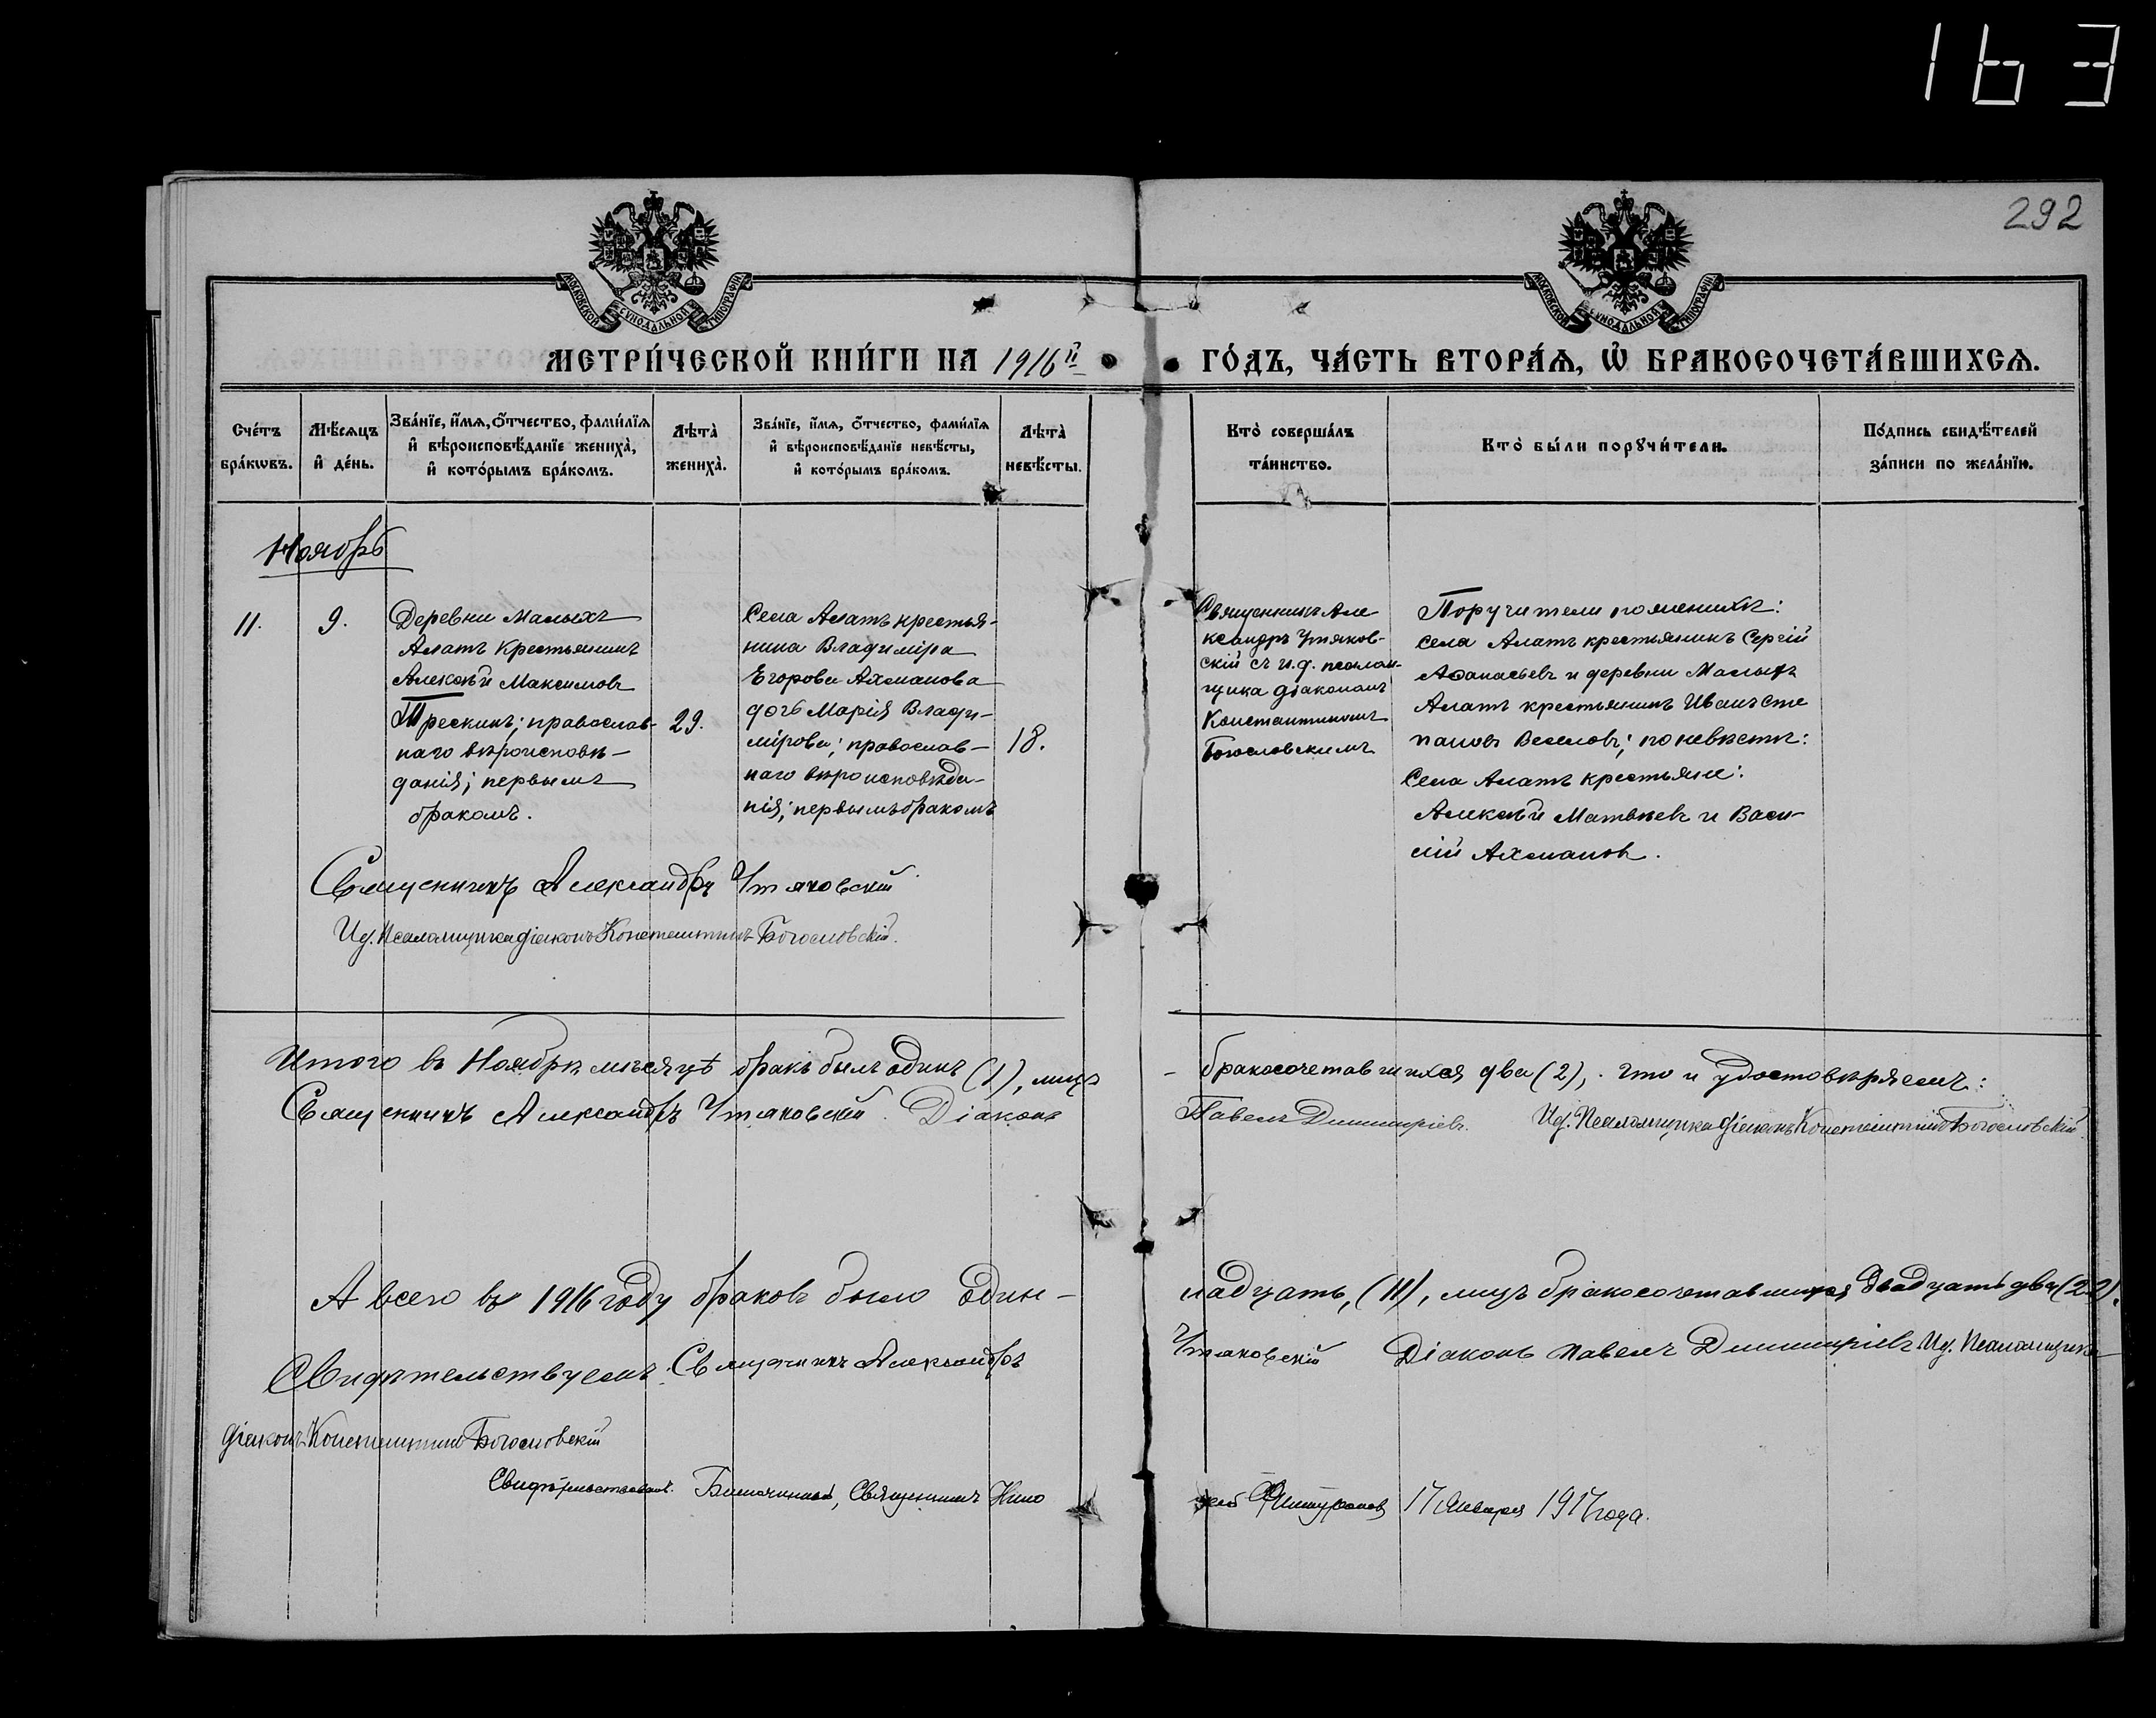 163
292
МОСКОВСКОЙ СѴНОДАЛЬНОЙ ТИПОГРАФІИ
МОСКОВСКОЙ СѴНОДАЛЬНОЙ ТИПОГРАФІИ
МЕТРИ́ЧЕСКОЙ КНИ́ГИ НА 1916й
ГО́ДЪ, ЧА́СТЬ ВТОРА́Ѧ, Ѽ БРАКОСОЧЕТА́ВШИХСѦ.
Сче́тъ
бра́кѡвъ.
Мѣ́сѧцъ
и҆ де́нь.
Зва́нїе, и҆́мѧ, ѻ҆́тчество, фами́лїѧ
и҆ вѣроисповѣ́данїе жениха̀,
и҆ кото́рымъ бра́комъ.
Лѣта̀
жениха̀.
Зва́нїе, и҆́мѧ, ѻ҆́тчество, фами́лїѧ
и҆ вѣроисповѣ́данїе невѣ́сты,
и҆ кото́рымъ бра́комъ.
Лѣта̀
невѣ́сты.
Кто̀ соверша́лъ
та́инство.
Кто̀ бы́ли порꙋчи́тели.
По́дпись свидѣ́телей
за́писи по жела́нїю.
Ноябрь
11.
9.
Деревни Малыхъ
Алатъ крестьянинъ
Алексѣй Максимовъ
Трескинъ; православ-
наго вѣроисповѣ-
данія; первымъ
бракомъ.
29.
Села Алатъ крестья-
нина Владиміра
Егорова Ахманова
дочь Марія Влади-
мірова; православ-
наго вѣроисповѣда-
нія; первымъ бракомъ
18.
Священникъ Але
ксандръ Утяков-
скій съ и.д. псалом-
щика діакономъ
Константиномъ
Богословскимъ
Поручители по женихѣ:
села Алатъ крестьянинъ Сергій
Аѳанасьевъ и деревни Малыхъ
Алатъ крестьянинъ Иванъ Сте
пановъ Веселовъ; по невѣстѣ:
Села Алатъ крестьяне:
Алексѣй Матвѣевъ и Васи-
лій Ахмановъ.
Священникъ Александръ Утяковскій
Ид. Псаломщика діаконъ Константинъ Богословскій.
Итого въ Ноябрѣ мѣсяцѣ бракъ былъ одинъ (1), лицъ
- бракосочетавшихся два (2), что и удостовѣряемъ:
Священникъ Александръ Утяковскій. Діаконъ
Павелъ Димитріевъ. Ид. Псаломщика діаконъ Константинъ Богословскій.
А всего въ 1916 году браковъ было один-
надцать, (11), лицъ бракосочетавшихся двадцать два (22).
Свидѣтельствуемъ: Священникъ Александръ
Утяковскій Діаконъ Павелъ Димитріевъ. Ид. Псаломщика
діаконъ Константинъ Богословскій
Свидѣтельствовалъ: Благочинный, Священникъ Нико
17 Января 1917 года.